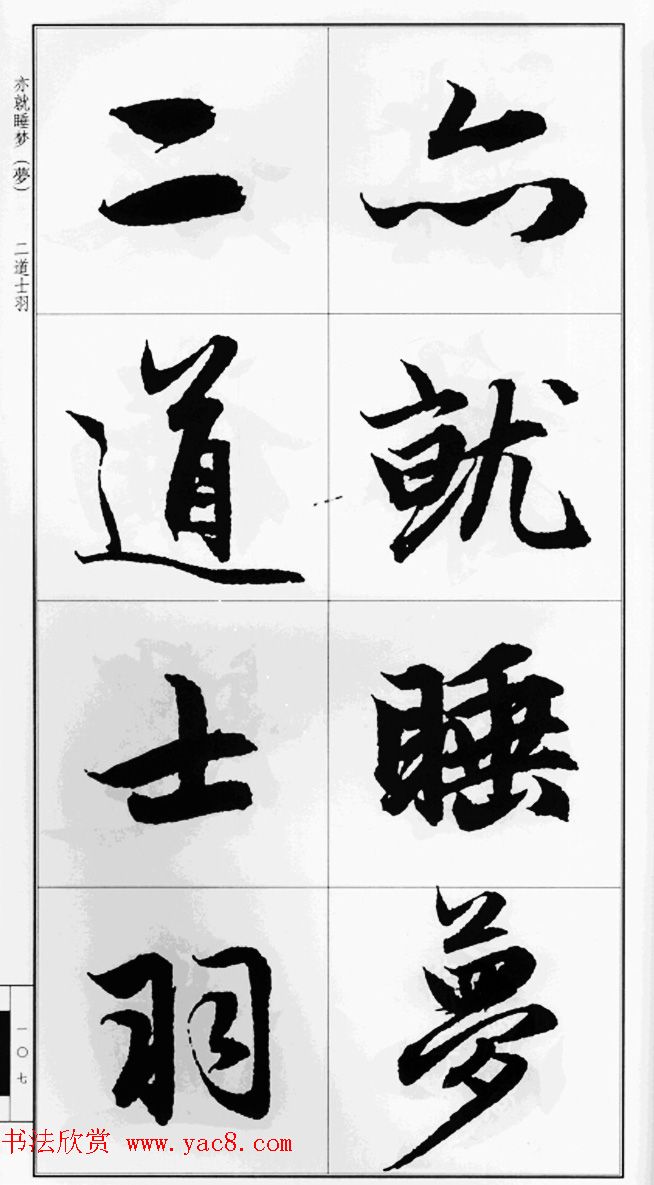 亦就睡夢
二道士羽
亦就睡梦（夢） 二道士羽
一〇七
书法欣赏 www.yac8.com